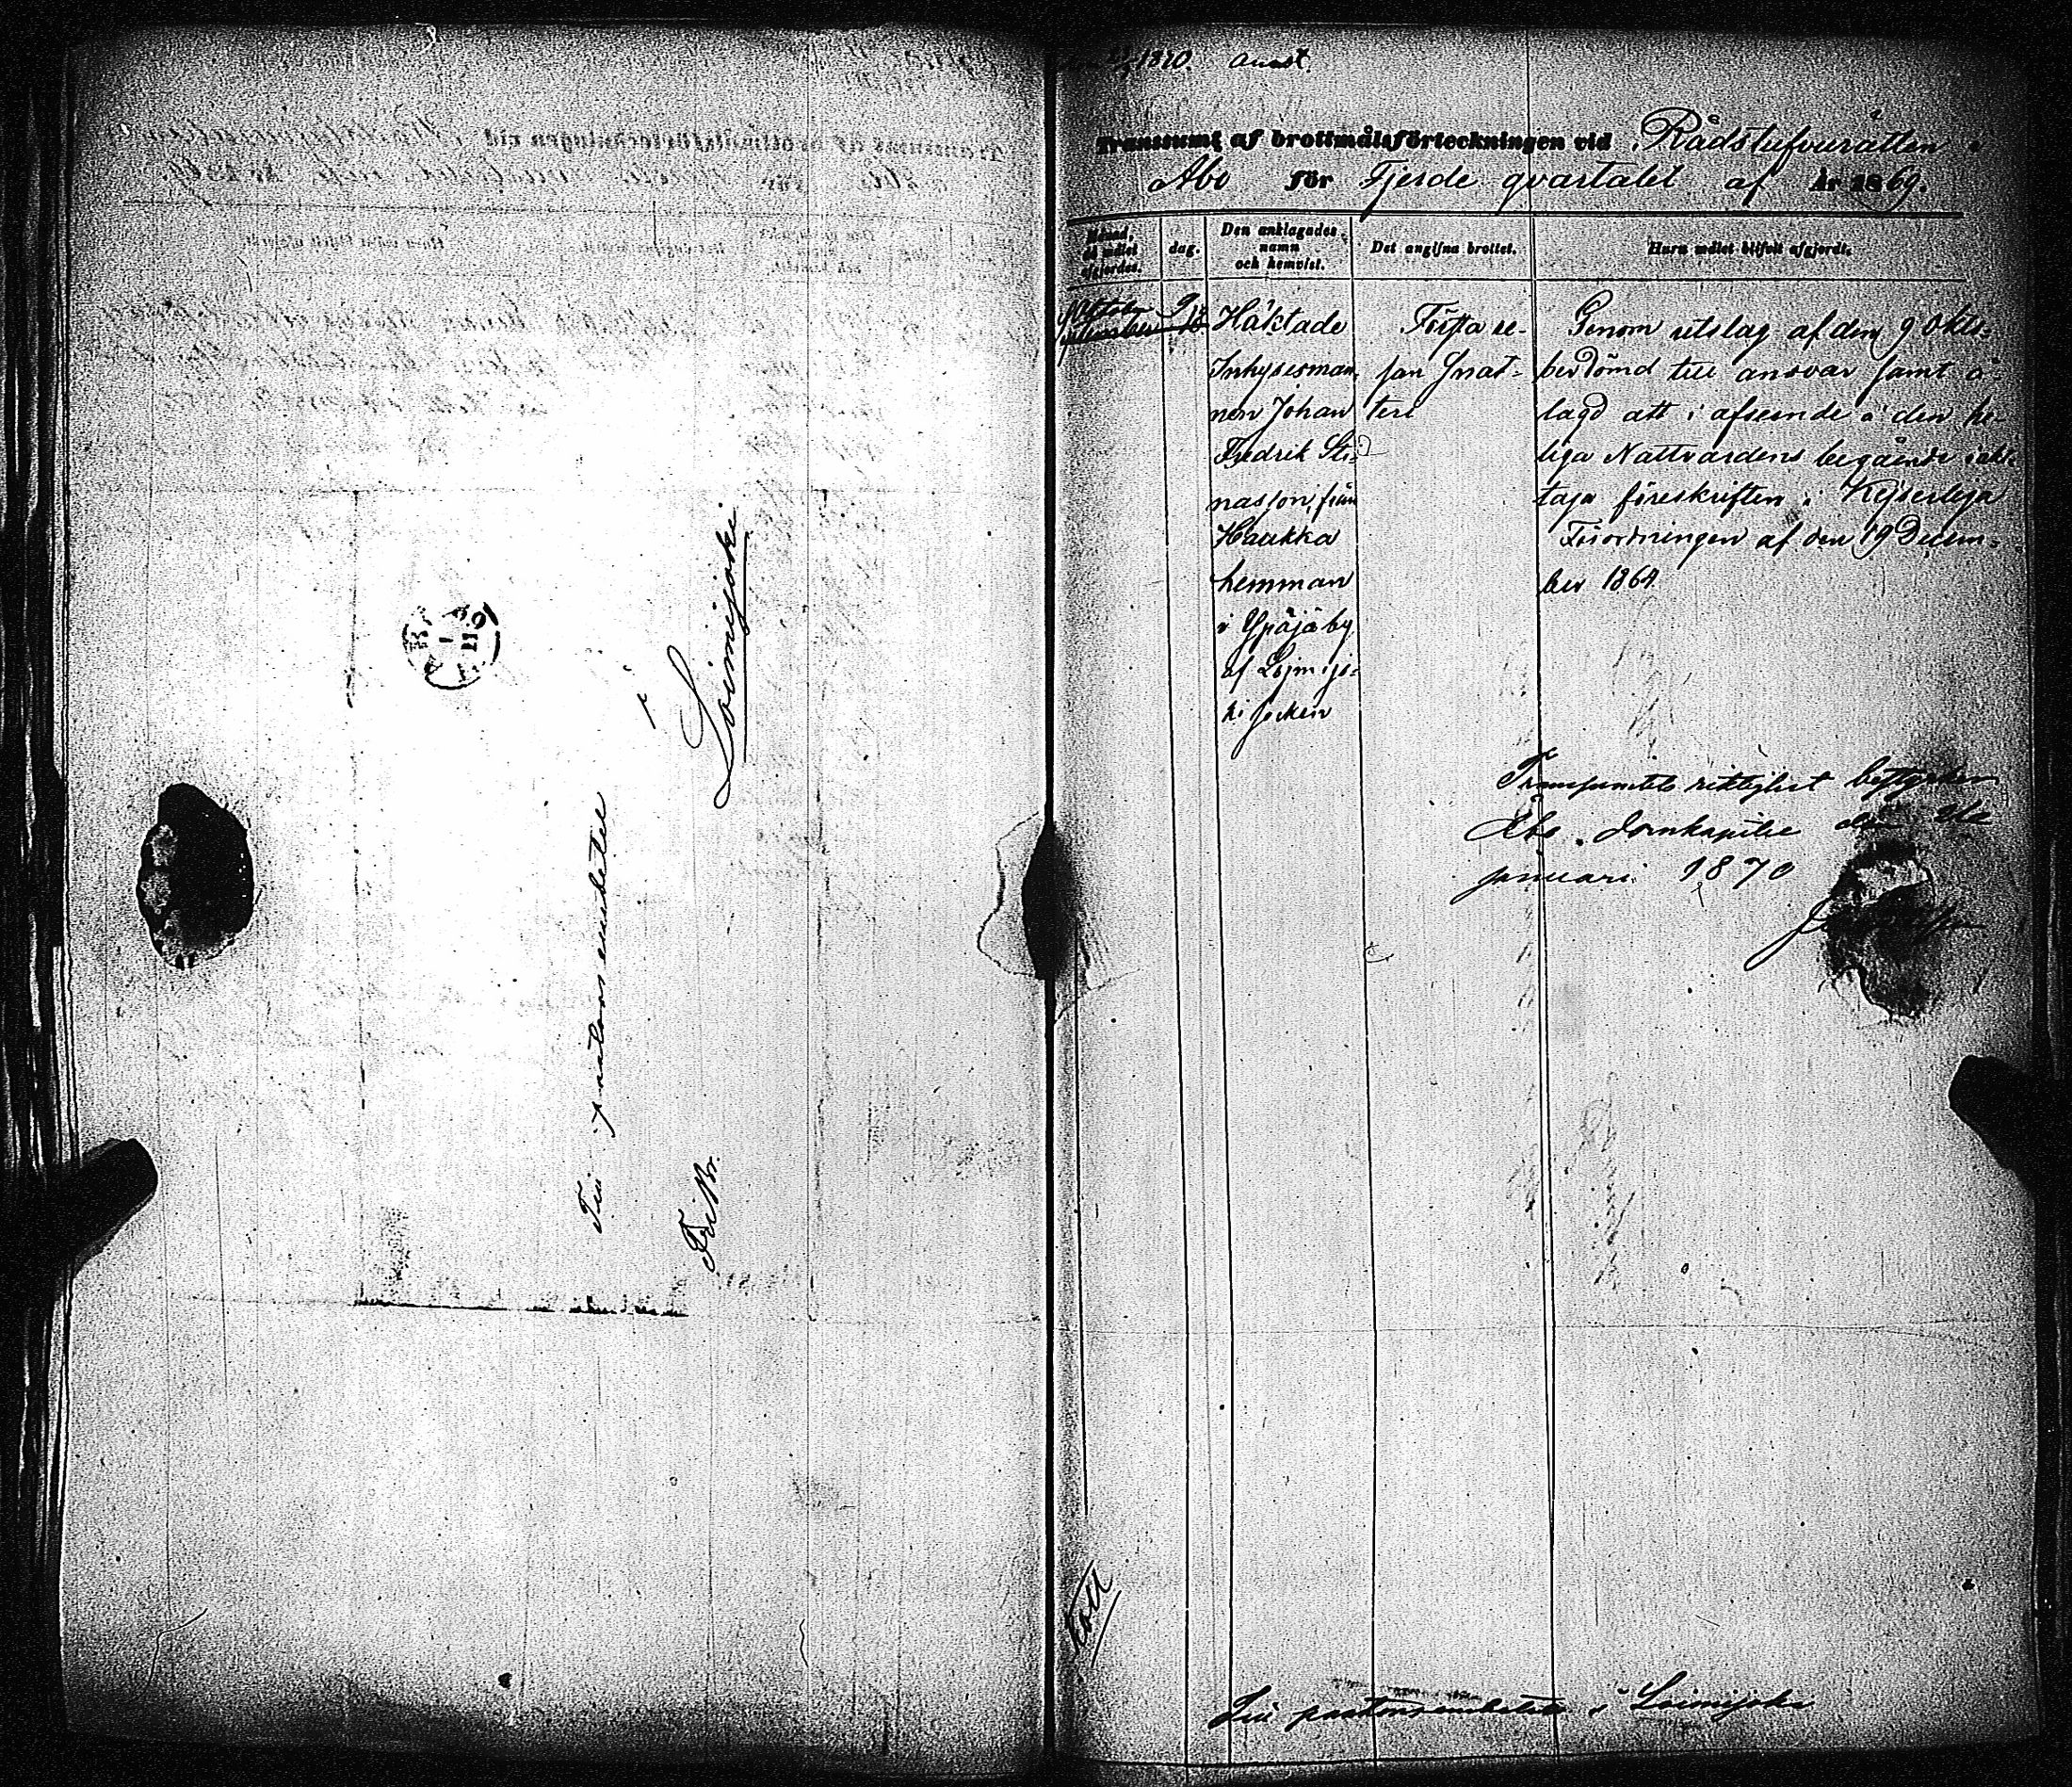 Till pastorsembetet
i
Loimijoki
Fr. Br.
1870. anest.
Transsumt af brottmålsförteckningen vid Rådstufvurätten i
Åbo för Fjerde qvartalet af År 1869.
Månad, då målet afgjordes.
dag.
Den anklagades namn och hemvist.
Det angifna brottet.
Huru målet blifvit afgjordt.
Oktober 9
Häktade
Inhysesman-
nen Johan
Fredrik Sti-
nasson, från
Haukka
hemman
i Ypäjä by
af Loimijo-
ki socken
Första re-
san snat-
teri
Genom utslag af den 9 Okto-
ber dömd till ansvar samt å-
lagd att i afseende å den he-
liga Nattvardens begående iakt-
taga föreskriften i Kejserliga
Förordningen af den 19 Decem-
ber 1864.
Transsumtets riktighet bestyrker
Åbo Domkapitel den
januari 1870
Till pastorsembetet i Loimijoki